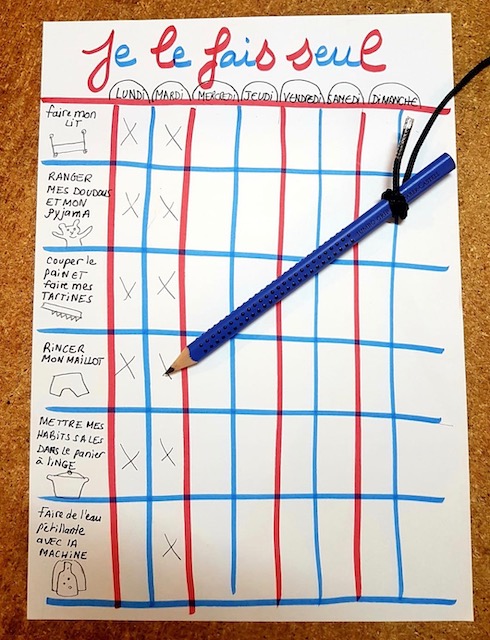 Je le fais seul
LUNDI MARDI MERCREDI JEUDI VENDREDI SAMEDI DIMANCHE
faire mon
LIT
RANGER
MES DOUDOUS
ET MON
pyjamA
couper le
paiN ET
faire mes
TARTINES
RINCER
MON MAILLOT
METTRE MES
HABITS SALES
DANS le panier
à liNGE
FAIRE de l'eau
pétillante
avec lA
MACHINE